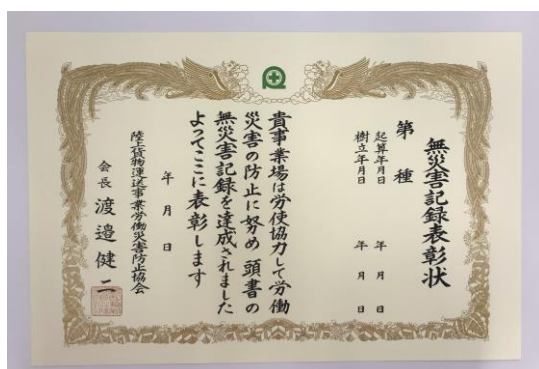 無災害記録表彰状
第 種
起算年月日 年 月 日
樹立年月日 年 月 日
貴事業場は労使協力して労働
災害の防止に努め 頭書の
無災害記録を達成されました
よってここに表彰します
年 月 日
陸上貨物運送事業労働災害防止協会
会長 渡邉健二